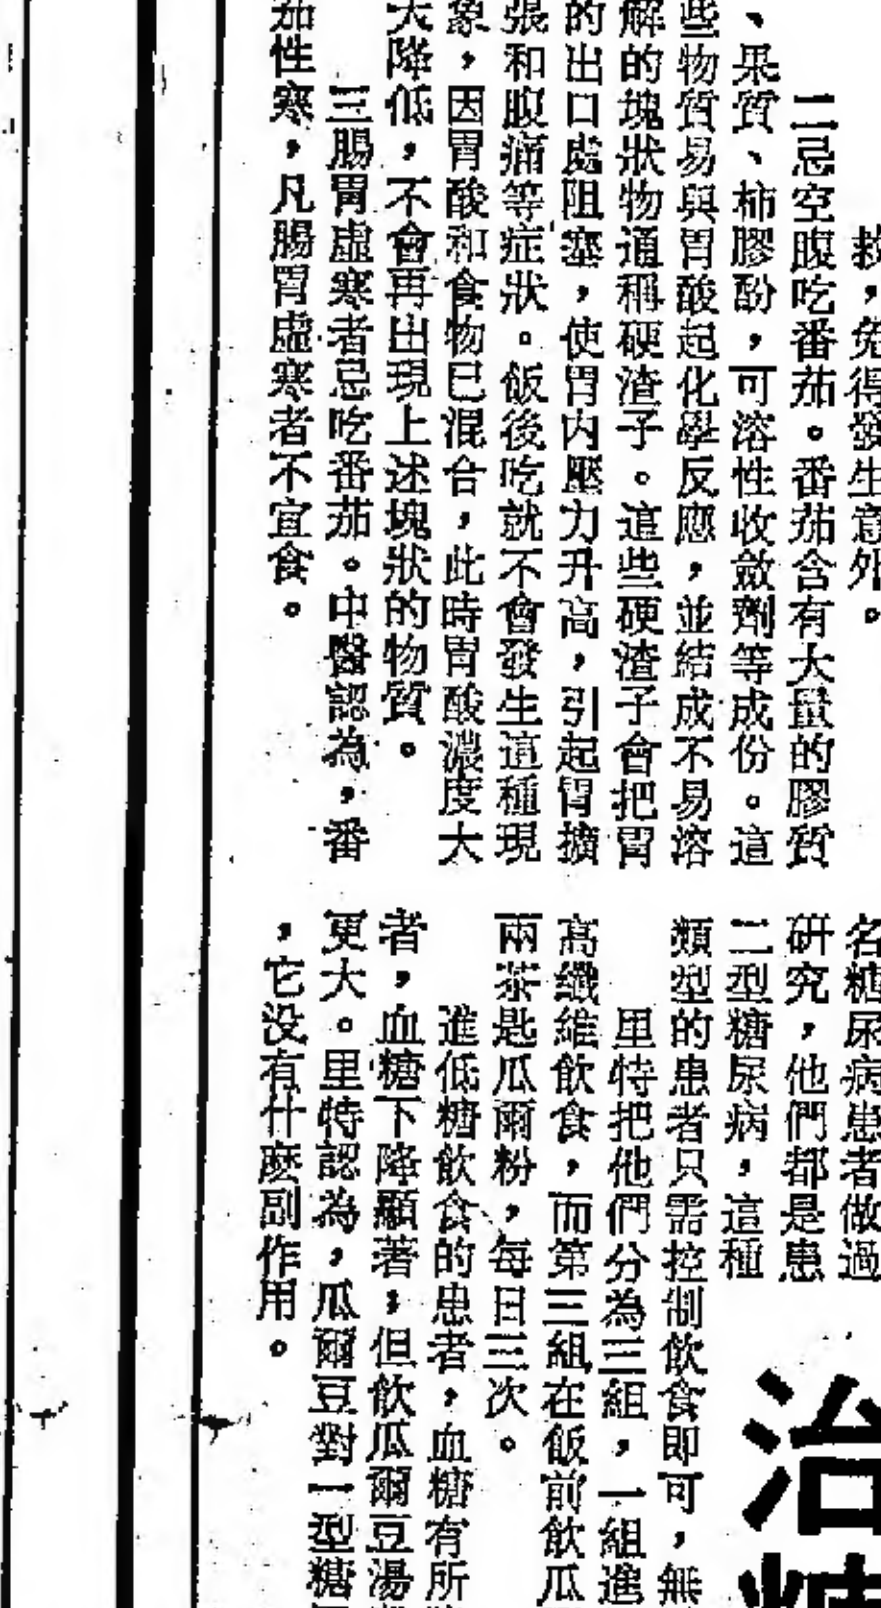 救，免得發生意外。
二忌空腹吃番茄。番茄含有大量的膠質
、果質、柿膠酚，可溶性收斂劑等成份。這
些物質易與胃酸起化學反應，並結成不易溶
解的塊狀物通稱硬渣子。這些硬渣子會把胃
的出口處阻塞，使胃内壓力升高，引起胃擴
張和腹痛等症狀。飯後吃就不會發生這種現
象，因胃酸和食物已混合，此時胃酸濃度大
大降低，不會再出現上述塊狀的物質。
三腸胃虛寒者忌吃番茄。中醫認為，番
茄性寒，凡腸胃虛寒者不宜食。
治糖
名糖尿病患者做過
研究，他們都是患
二型糖尿病，這種
類型的患者只需控制飲食即可，無
里特把他們分為三組，一組進
高纖維飲食，而第三組在飯前飲瓜
兩茶匙瓜爾粉，每日三次。
進低糖飲食的患者，血糖有所
者，血糖下降顯著，但飲瓜爾豆湯
更大。里特認為，瓜爾豆對一型糖
，它没有什麽副作用。